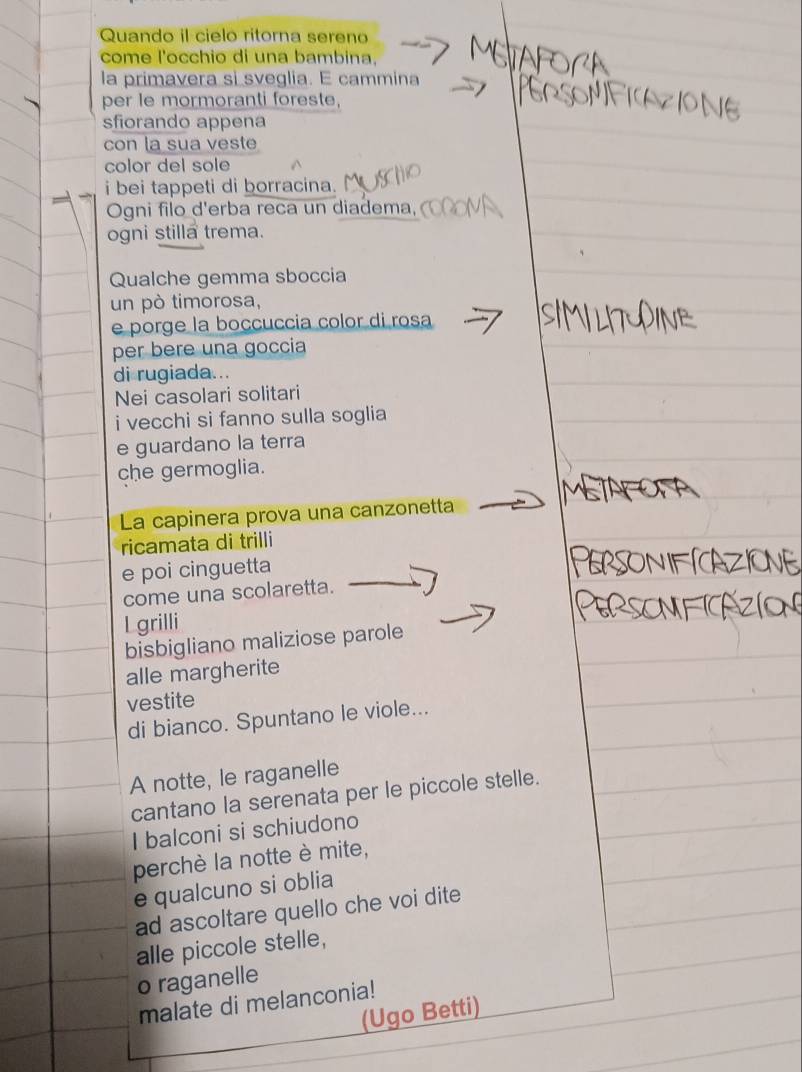 Quando il cielo ritorna sereno
come l'occhio di una bambina, METAFORA
la primavera si sveglia. E cammina PERSONIFICAZIONE
per le mormoranti foreste,
sfiorando appena
con la sua veste
color del sole
i bei tappeti di borracina. MUSCHIO
Ogni filo d'erba reca un diadema, CORONA
ogni stilla trema.
Qualche gemma sboccia
un pò timorosa,
e porge la boccuccia color di rosa SIMILITUDINE
per bere una goccia
di rugiada...
Nei casolari solitari
i vecchi si fanno sulla soglia
e guardano la terra
che germoglia.
La capinera prova una canzonetta METAFORA
ricamata di trilli
e poi cinguetta
come una scolaretta. PERSONIFICAZIONE
I grilli
bisbigliano maliziose parole PERSONIFICAZIONE
alle margherite
vestite
di bianco. Spuntano le viole...
A notte, le raganelle
cantano la serenata per le piccole stelle.
I balconi si schiudono
perchè la notte è mite,
e qualcuno si oblia
ad ascoltare quello che voi dite
alle piccole stelle,
o raganelle
malate di melanconia!
(Ugo Betti)